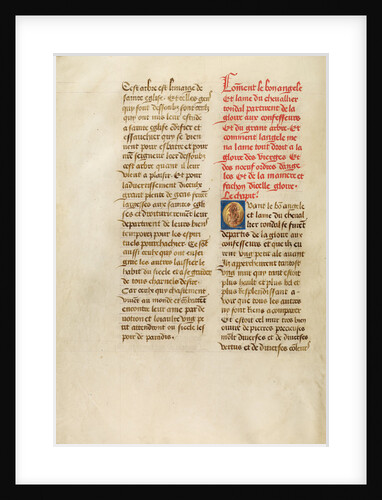 Cest arbre est limaige de
saincte eglise. Et celles gens
qui sont dessoubz sont ceulx
qui ont mis leur estude
a saincte eglise edifier et
essauchier quy se bien
nent pour lestruire et pour
nostre seigneur lors dessoubz
cest arbre quant a leur
vient a plaisir. Et pour
la
grant plente de gens
larges
et droiturierement leur
departirent de leurs biens
temporelz pour les espiri
tuelz pourchachier. Ce sont
aussi ceulx quy ont ensei
gnie les autres laissier le
habit du siecle et se garder
de tous charnelz desirs.
Car ceulx quy chastement
vivent au monde et
encontre leur ame par de
votion et loyaulte quy pe
ut attendent ou siecle les
joie de paradis.
Comment le bon angele
et lame du chevallier
tondal partirent de la
gloire aux confesseurs
et du grant arbre. Et
comment langele me
na lame tout droit a la
gloire des vierges et
des noef ordres dange
les et de la maniere et
fachon dicelle gloire.
Le chapitre.
Quant le bon angele
et lame du cheval
lier tondal se furent
departis de la gloire aux
confesseurs et que ilz eu
rent ung petit ale avant
Ilz apercheurent tantost
ung mur quy tant estoit
plus hault et plus bel et
plus resplendissant a
voir que tous les autres
ny sont riens a comparer
Et estoit cel mur tres bien
ouvre de pierres precieuses
moult diverses et de diverses
vertus et de diverses couleurs